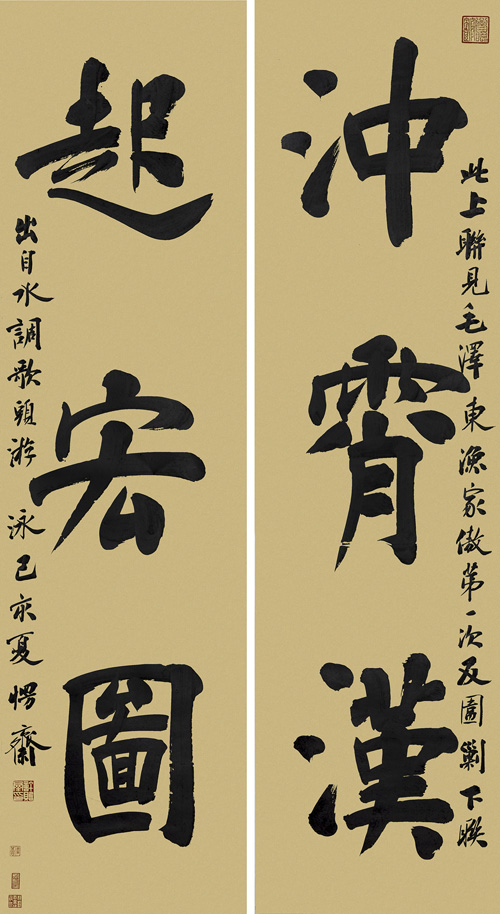 沖霄漢
此上聯見毛澤東漁家傲第一次反圍剿下聯
起宏圖
出自水調歌頭游泳己亥夏愕齋